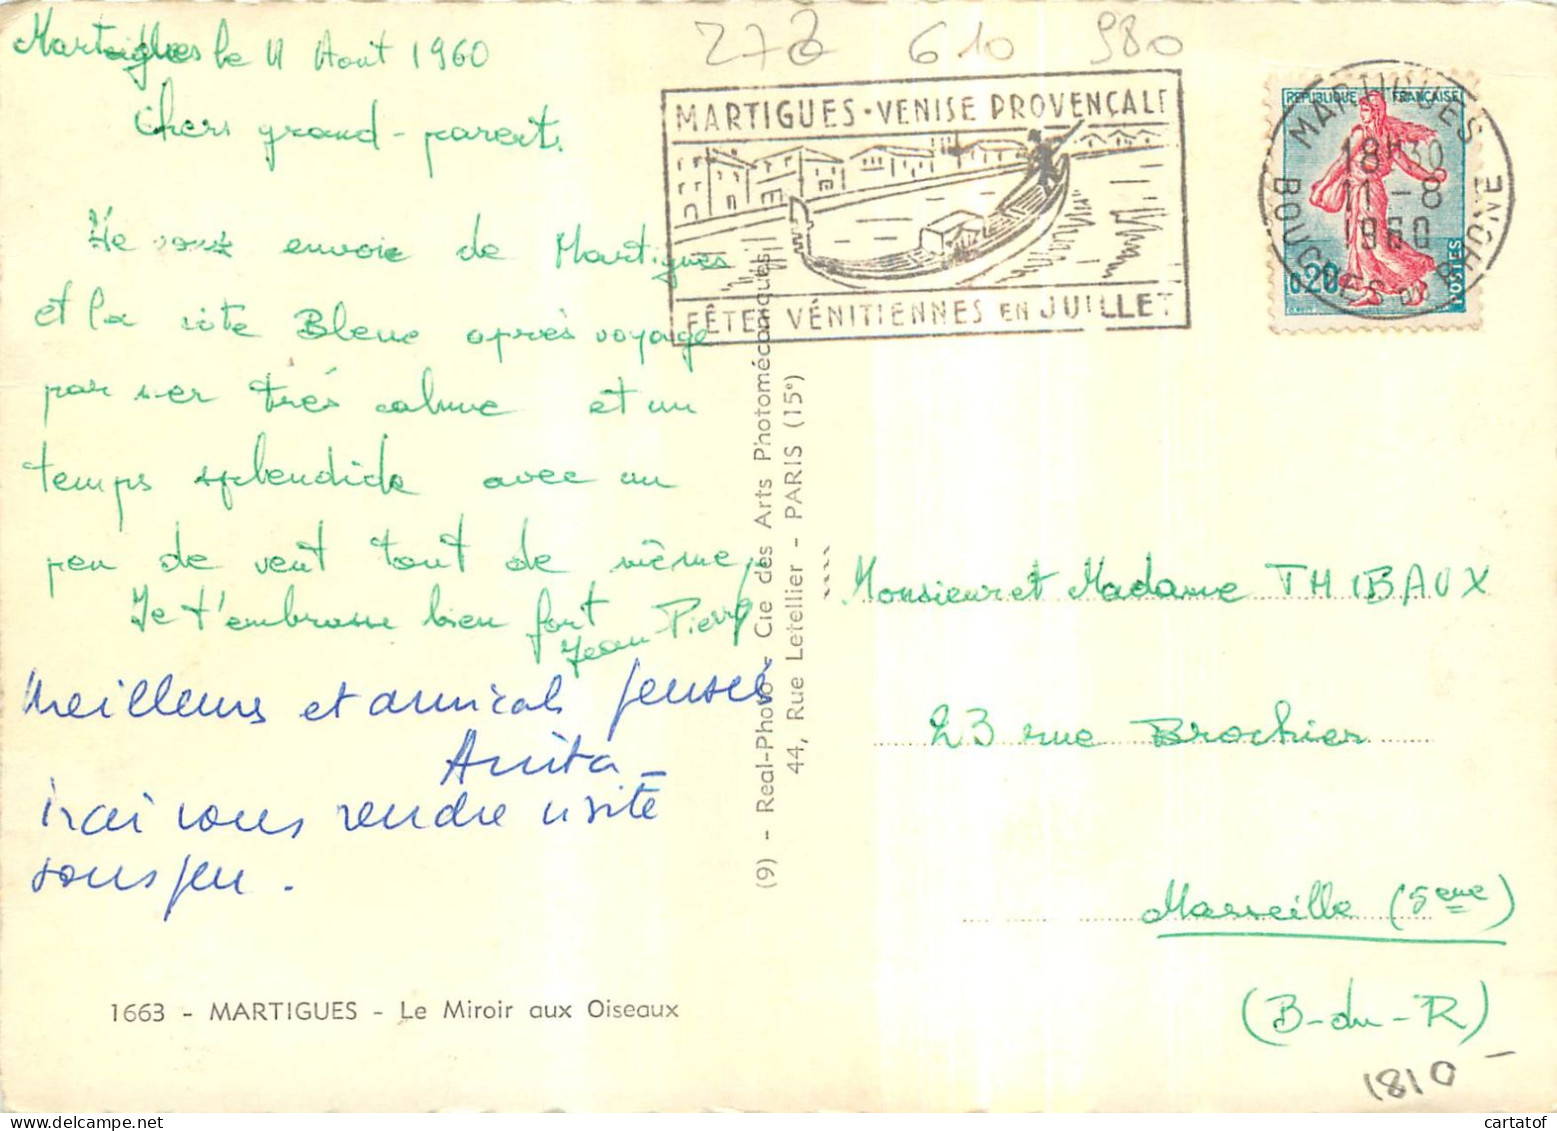 Martigues le 11 Août 1960
Chers grand-parents
Je vous envoie de Martigues
et la côte Bleue après voyage
par mer très calme et un
temps splendide avec un
peu de vent tout de même,
Je t'embrasse bien fort
Jean-Pierre
Meilleures et amicals pensées
Anita
irai vous rendre visite
sous peu.
1663 - MARTIGUES - Le Miroir aux Oiseaux
(9) - Real-Photo - Cie des Arts Photomécaniques
44, Rue Letellier - PARIS (15e)
610 980
MARTIGUES - VENISE PROVENÇALE
FÊTES VÉNITIENNES EN JUILLET
RÉPUBLIQUE FRANÇAISE
0,20
POSTES
MARTIGUES
18H30
11 - 8
1960
BOUCHES DU RHONE
Monsieur et Madame THIBAUX
23 rue Brochier
Marseille (5eme)
(B-du-R)
1810 -
cartatof
www.delcampe.net